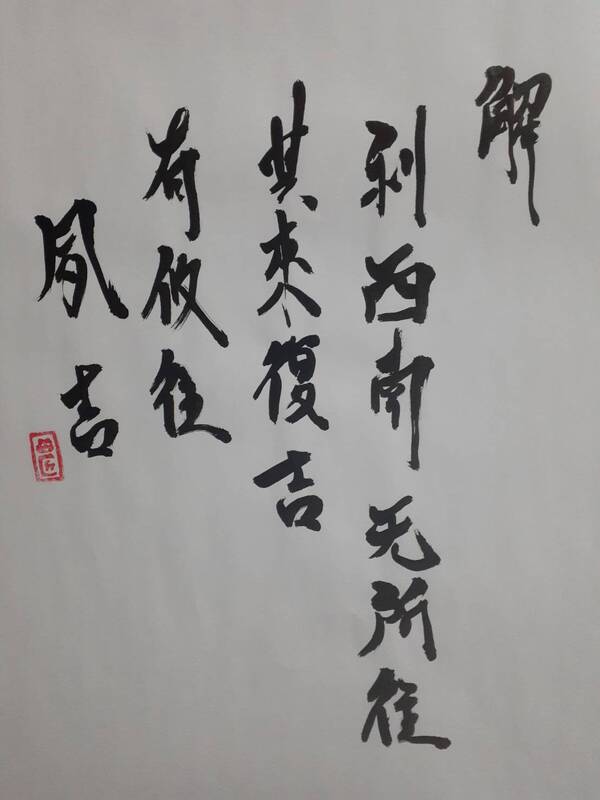 解
利西南无所往
其来復吉
有攸往
夙吉